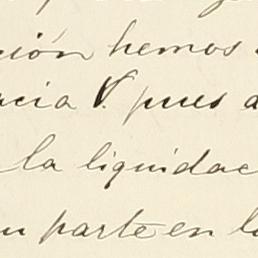 ción hemos
acia V. pues a
la liquidac
su parte en la